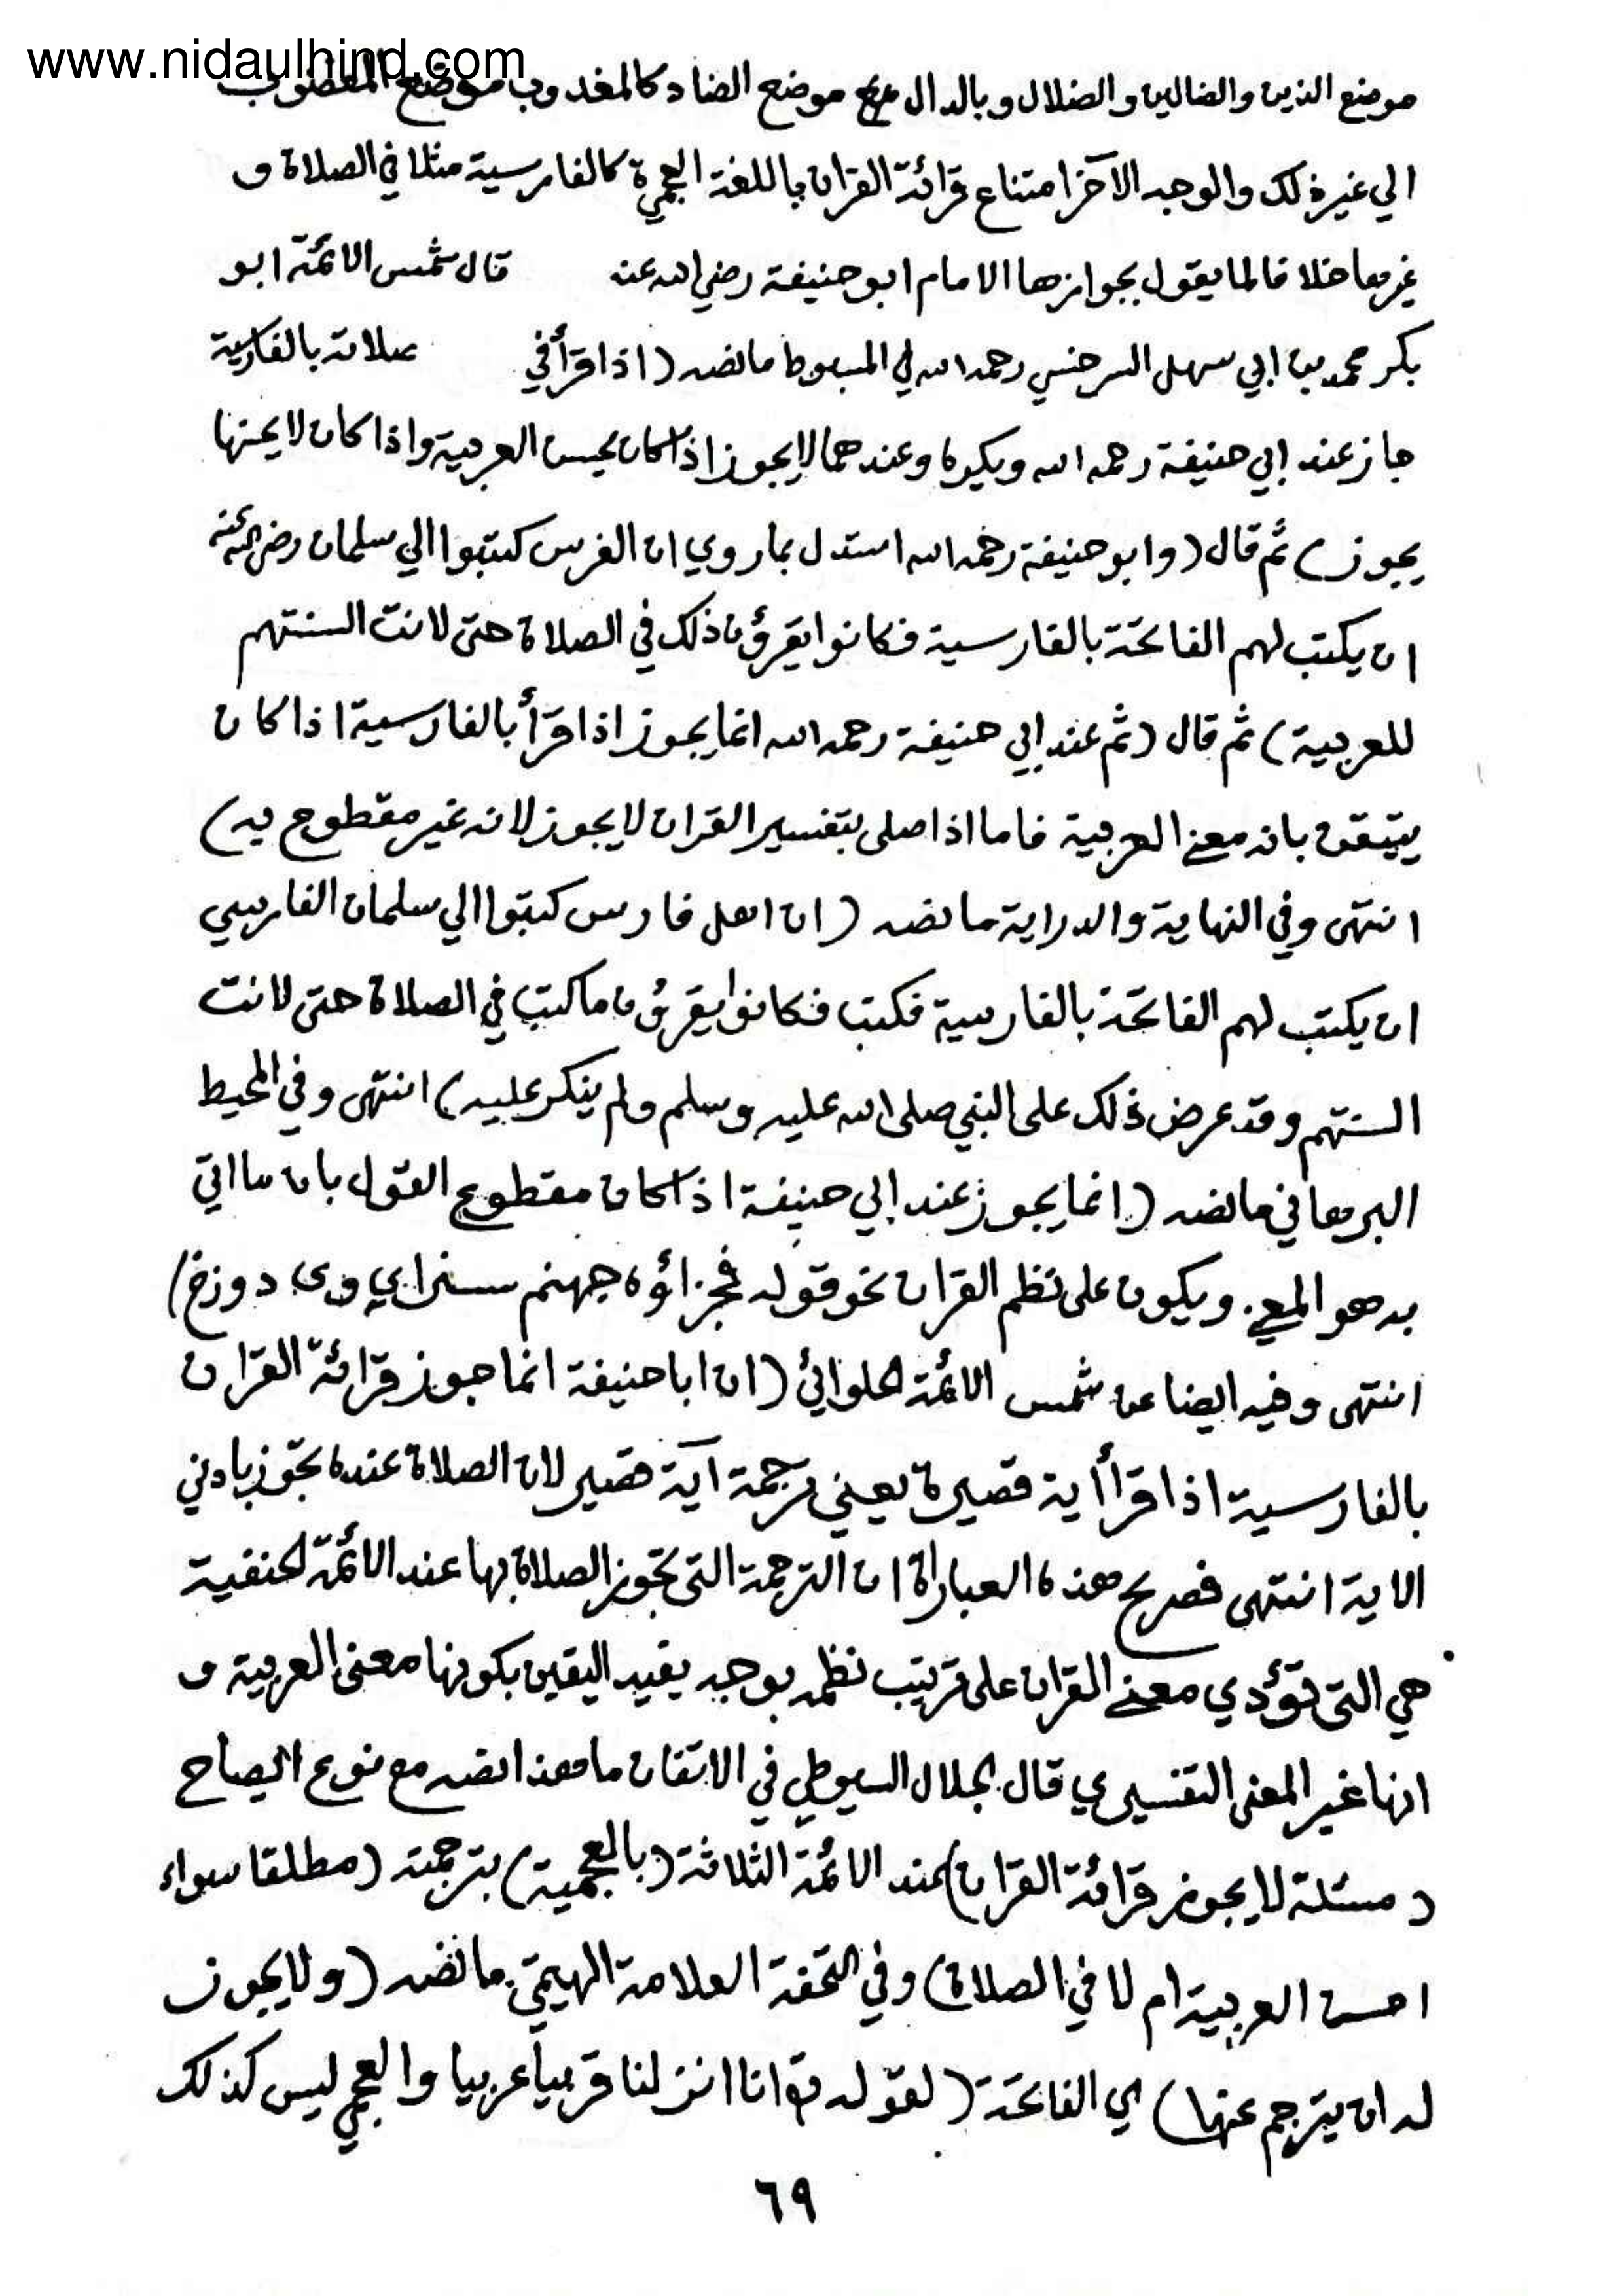 www.nidaulhind.com
موضع الذين والضالين والضلال وبالدال موضع الضاد كالمغدوب موضع المغضوب
الي غير ذلك والوجه الآخر امتناع قرائة القران باللغة العجمية كالفارسية مثلا في الصلاة و
غيرها خلافا لما يقول بجوازها الامام ابو حنيفة رضي الله عنه قال شمس الائمة ابو
بكر محمد بن ابي سهل السرخسي رحمه الله في المبسوط ما نصه (اذا قرأ في صلاته بالفارسية
جاز عند ابي حنيفة رحمه الله ويكره وعندهما لا يجوز اذا كان يحسن العربية واذا كان لا يحسنها
يجوز) ثم قال (وابو حنيفة رحمه الله استدل بما روي ان الفرس كتبوا الي سلمان رضي الله عنه
ان يكتب لهم الفاتحة بالفارسية فكانوا يقرؤن ذلك في الصلاة حتى لانت السنتهم
للعربية) ثم قال (ثم عند ابي حنيفة رحمه الله انما يجوز اذا قرأ بالفارسية اذا كان
يتيقن بانه معنى العربية فاما اذا صلى بتفسير القران لا يجوز لانه غير مقطوع به)
انتهى وفي النهاية والدراية ما نصه (ان اهل فارس كتبوا الي سلمان الفارسي
ان يكتب لهم الفاتحة بالفارسية فكتب فكانوا يقرؤن ما كتب في الصلاة حتى لانت
السنتهم وقد عرض ذلك على النبي صلى الله عليه وسلم ولم ينكر عليه) انتهى وفي المحيط
البرهاني ما نصه (انما يجوز عند ابي حنيفة اذا كان مقطوع القول بان ما اتي
به هو المعنى ويكون على نظم القران نحو قوله فجزاؤه جهنم سزاي وى دوزخ)
انتهى وفيه ايضا عن شمس الائمة الحلوائي (ان ابا حنيفة انما جوز قرائة القران
بالفارسية اذا قرأ أية قصيرة يعني ترجمة آية قصير لان الصلاة عنده تجوز بادني
الاية انتهى فصريح هذه العباراة ان الترجمة التى تجوز الصلاة بها عند الائمة الحنفية
هي التى تؤدي معنى القران على ترتيب نظمه بوجه يفيد اليقين بكونها معنى العربية و
انها غير المعنى التفسيري قال الجلال السيوطي في الاتقان ما هذا نصه مع نوع ايضاح
(مسئلة لا يجوز قرائة القران) عند الائمة الثلاثة (بالعجمية) بترجمته (مطلقا سواء
احسن العربية ام لا في الصلاة) وفي التحفة العلامة الهيتمي ما نصه (ولا يجوز
له ان يترجم عنها) اي الفاتحة (لقوله تع انا انزلنا قربيا عربيا والعجمي ليس كذلك
٦٩